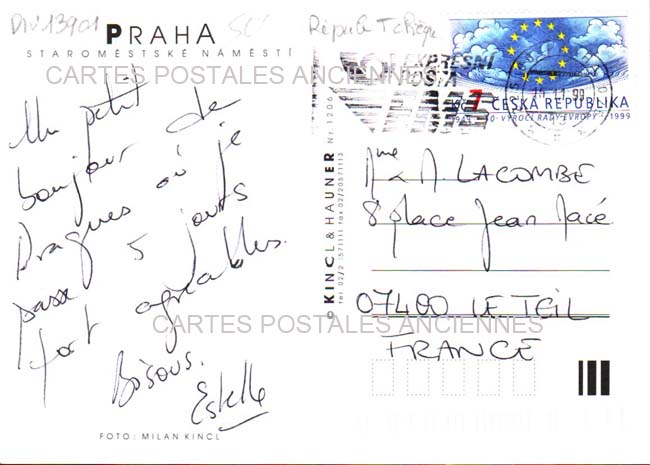 DIV13901
PRAHA
STAROMĚSTSKÉ NÁMĚSTÍ
CARTES POSTALES ANCIENNES
Un petit
bonjour de
Pragues où je
passe 5 jours
fort agréables.
Bisous.
Estelle
FOTO: MILAN KINCL
© KINCL & HAUNER Nr. 1206
tel. 02/2 1571111 fax 02/20571113
Républe Tchèque
EXPRESNÍ
POŠTA
Kč 7 ČESKÁ REPUBLIKA
1949 50. VÝROČÍ RADY EVROPY 1999
10.11.99
Mme & M. LACOMBE
8 place Jean Macé
07400 LE TEIL
FRANCE
CARTES POSTALES ANCIENNES